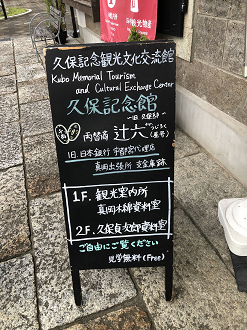 久保記念観光文化交流館
Kubo Memorial Tourism
and Cultural Exchange Center
久保記念館
〜旧久保邸〜
両替商 辻六
(屋号)
旧日本銀行 宇都宮代理店
真岡出張所 支金庫跡
1F. 観光案内所
真岡木綿資料室
2F. 久保貞次郎資料室
ご自由にご覧ください
見学無料(Free)